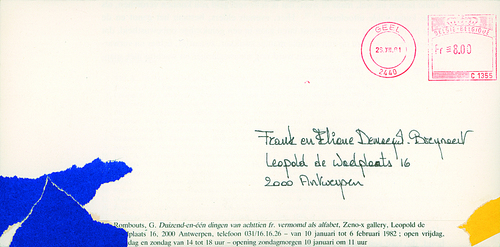 GEEL
2440
BELGIE-BELGIQUE
Fr = 8.00
C 1355
Frank en Eliane Demaegd-Breynaert
Leopold de Waelplaats 16
2000 Antwerpen
Rombouts, G. Duizend-en-één dingen van achttien fr. vermomd als alfabet, Zeno-x gallery, Leopold de
plaats 16, 2000 Antwerpen, telefoon 031/16.16.26 – van 10 januari tot 6 februari 1982 ; open vrijdag,
dag en zondag van 14 tot 18 uur – opening zondagmorgen 10 januari om 11 uur